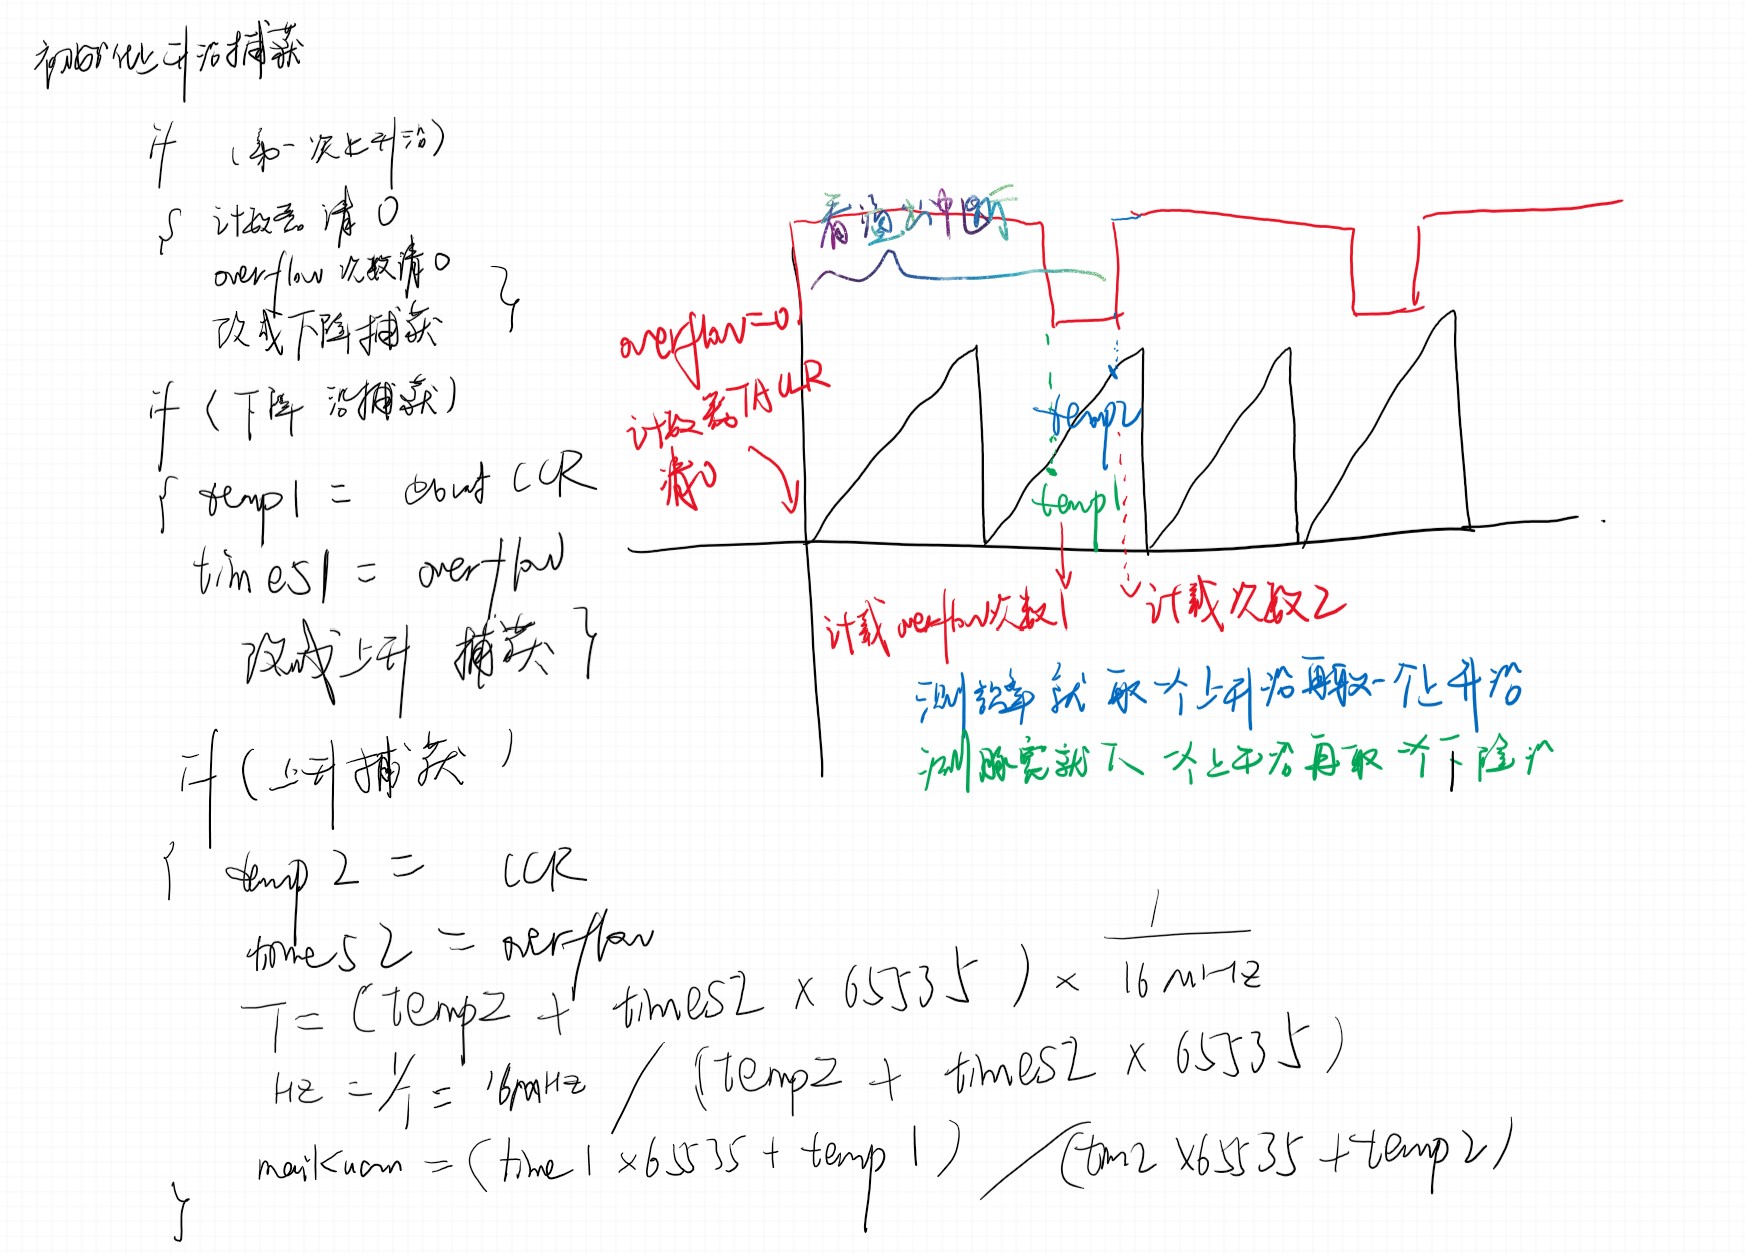 初始化上升沿捕获
if (第一次上升沿)
{ 计数器清0
overflow 次数清0
改成下降捕获 }
if (下降沿捕获)
{ temp1 = count CCR
times1 = overflow
改成上升 捕获 }
if (上升捕获)
{ temp2 = CCR
times2 = overflow
T = (temp2 + times2 × 65535) × 1/16MHz
Hz = 1/T = 16MHz / (temp2 + times2 × 65535)
maikuan = (time1 × 65535 + temp1) / (tim2 × 65535 + temp2)
}
看溢出中断
overflow=0
计数器TAUR
清0
temp2
temp1
计载overflow次数1
计载次数2
测频率就取一个上升沿再取一个上升沿
测脉宽就下一个上升沿再取一个下降沿